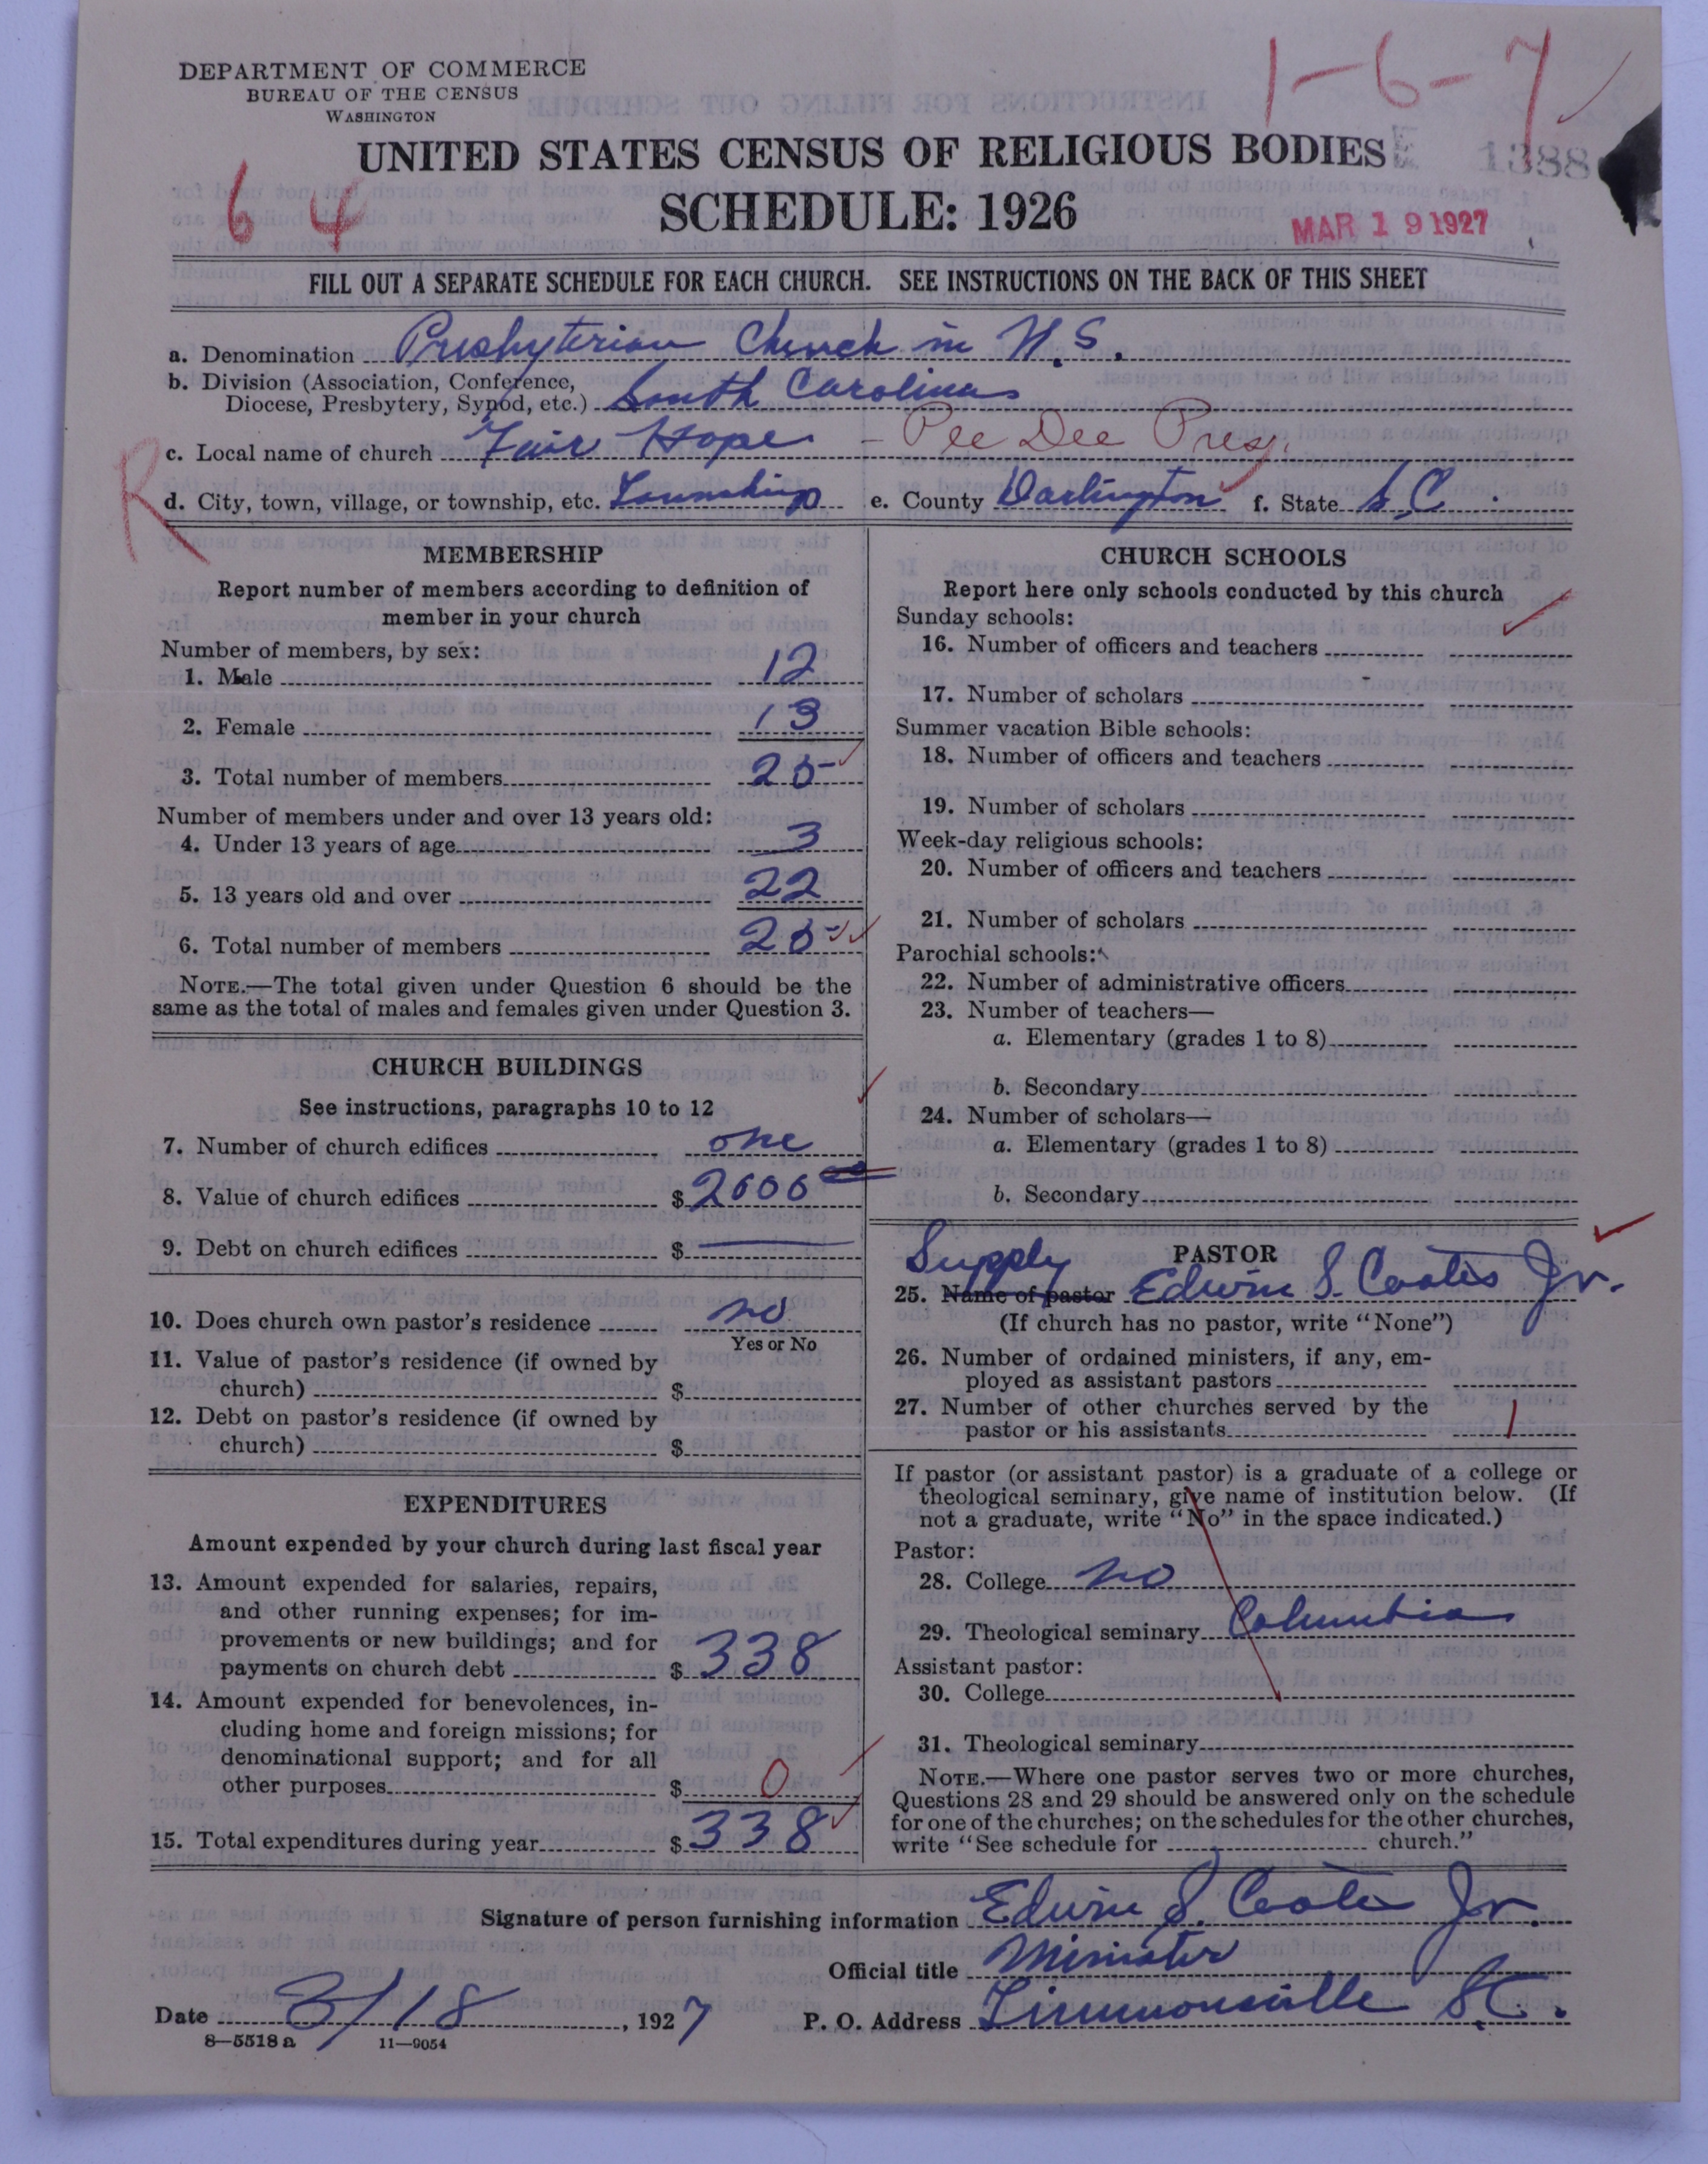 DEPARTMENT OF COMMERCE
BUREAU OF THE CENSUS
WASHINGTON
1-6-7
UNITED STATES CENSUS OF RELIGIOUS BODIES
1388
SCHEDULE: 1926
6 4
MAR 19 1927
FILL OUT A SEPARATE SCHEDULE FOR EACH CHURCH. SEE INSTRUCTIONS ON THE BACK OF THIS SHEET
a. Denomination Presbyterian Church in U.S.
b. Division (Association, Conference,
Diocese, Presbytery, Synod, etc.) South Carolina
c. Local name of church Fair Hope - Pee Dee Presy.
R
d. City, town, village, or township, etc. Township e. County Darlington f. State S.C.
MEMBERSHIP
Report number of members according to definition of
member in your church
Number of members, by sex:
1. Male 12
2. Female 13
3. Total number of members 25
Number of members under and over 13 years old:
4. Under 13 years of age 3
5. 13 years old and over 22
6. Total number of members 25
NOTE.—The total given under Question 6 should be the
same as the total of males and females given under Question 3.
CHURCH BUILDINGS
See instructions, paragraphs 10 to 12
7. Number of church edifices one
8. Value of church edifices $ 2000 00
9. Debt on church edifices $ —
10. Does church own pastor's residence no
Yes or No
11. Value of pastor's residence (if owned by
church) $
12. Debt on pastor's residence (if owned by
church) $
EXPENDITURES
Amount expended by your church during last fiscal year
13. Amount expended for salaries, repairs,
and other running expenses; for im-
provements or new buildings; and for
payments on church debt $ 338
14. Amount expended for benevolences, in-
cluding home and foreign missions; for
denominational support; and for all
other purposes $ 0
15. Total expenditures during year $ 338
CHURCH SCHOOLS
Report here only schools conducted by this church
Sunday schools:
16. Number of officers and teachers
17. Number of scholars
Summer vacation Bible schools:
18. Number of officers and teachers
19. Number of scholars
Week-day religious schools:
20. Number of officers and teachers
21. Number of scholars
Parochial schools:
22. Number of administrative officers
23. Number of teachers—
a. Elementary (grades 1 to 8)
b. Secondary
24. Number of scholars—
a. Elementary (grades 1 to 8)
b. Secondary
Supply PASTOR
25. Name of pastor Edwin S. Coates Jr.
(If church has no pastor, write "None")
26. Number of ordained ministers, if any, em-
ployed as assistant pastors
27. Number of other churches served by the
pastor or his assistants 1
If pastor (or assistant pastor) is a graduate of a college or
theological seminary, give name of institution below. (If
not a graduate, write "No" in the space indicated.)
Pastor:
28. College no
29. Theological seminary Columbia
Assistant pastor:
30. College
31. Theological seminary
NOTE.—Where one pastor serves two or more churches,
Questions 28 and 29 should be answered only on the schedule
for one of the churches; on the schedules for the other churches,
write "See schedule for church."
Signature of person furnishing information Edwin S. Coates Jr.
Official title Minister
Date 3/18, 1927 P. O. Address Timmonsville S.C.
8—5518 a 11—9054